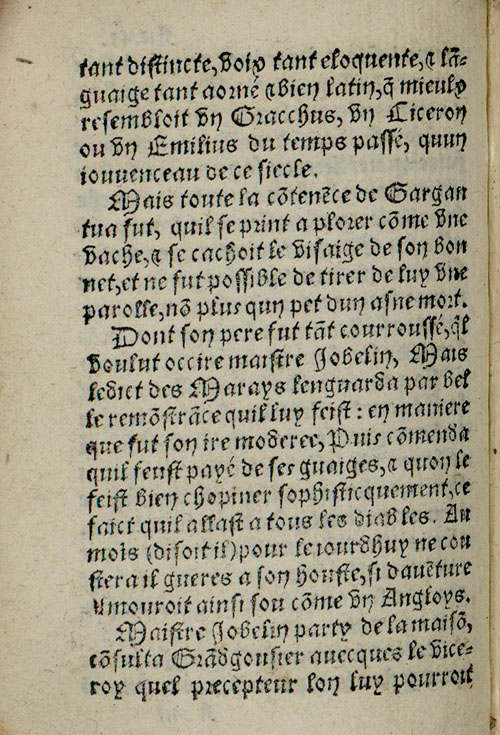 tant distincte, voix tant eloquente, & lã-
guaige tant aorné & bien latin, q̃ mieulx
resembloit vn Gracchus, vn Ciceron
ou vn Emilius du temps passé, quun
iouuenceau de ce siecle.
Mais toute la cõtenẽce de Gargan
tua fut, quil se print a plorer cõme vne
vache, & se cachoit le visaige de son bon
net, et ne fut possible de tirer de luy vne
parolle, nõ plus quun pet dun asne mort.
Dont son pere fut tãt courroussé, q̃l
voulut occire maistre Jobelin, Mais
ledict des Marays lenguarda par bel
le remõstrãce quil luy feist : en maniere
que fut son ire moderee, Puis cõmenda
quil feust payé de ses guaiges, & quon le
feist bien chopiner sophisticquement, ce
faict quil allast a tous les diables. Au
mois (disoit il) pour le iourdhuy ne cou
stera il gueres a son houste, si dauẽture
il mouroit ainsi sou cõme vn Angloys.
Maistre Jobelin party de la maisõ,
cõsulta Grãdgousier auecques le vice-
roy quel precepteur lon luy pourroit